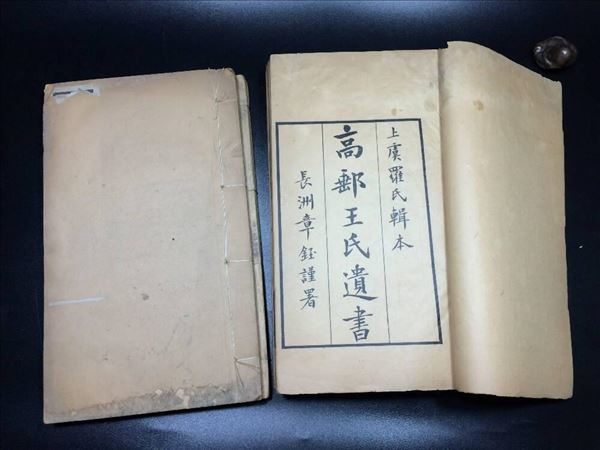 上虞羅氏輯本
高郵王氏遺書
長洲章鈺謹署